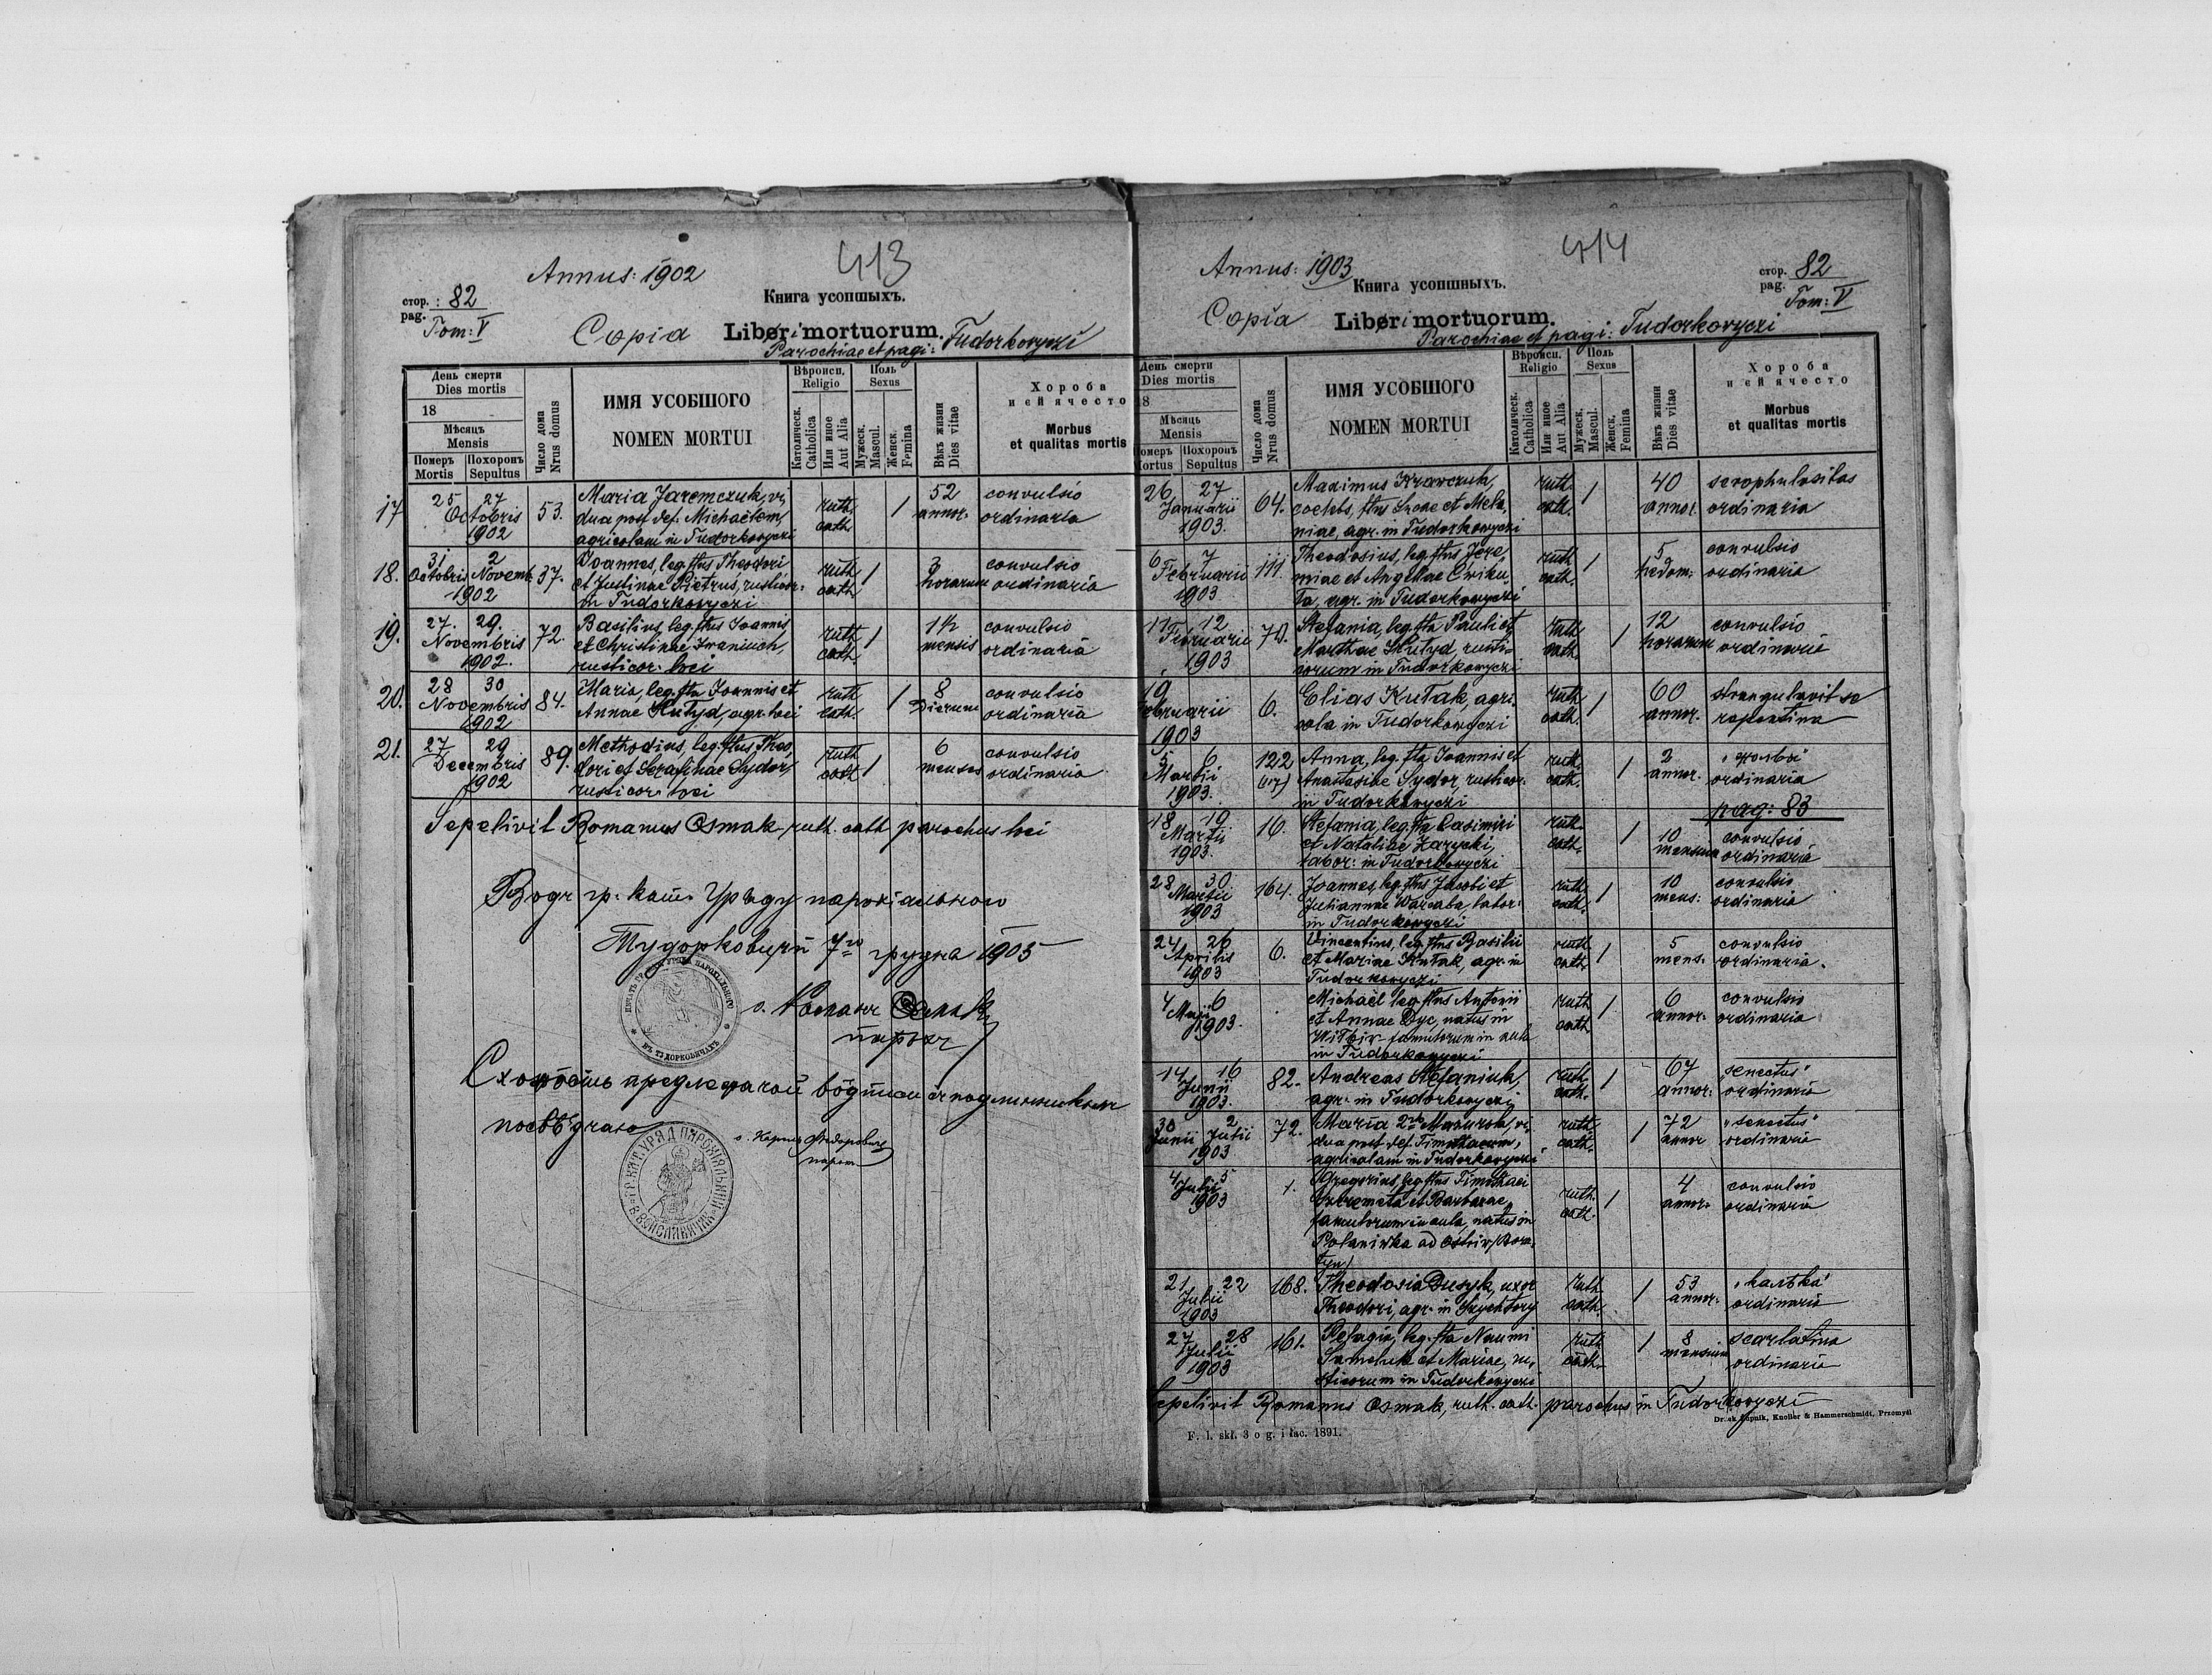 413
Annus: 1902
стор. : 82
pag.
Tom: V
Книга усопшыхъ.
Copia Liberi mortuorum.
Parochiae et pagi: Tudorkowyczi
День смерти
Dies mortis
18
Мѣсяць
Mensis
Померъ Похоронъ
Mortis Sepultus
Число дома
Nrus domus
ИМЯ УСОБШОГО
NOMEN MORTUI
Вѣроисп.
Religio
Католическ.
Catholica
Или иное
Aut Alia
Поль
Sexus
Мужеск.
Mascul.
Женск.
Femina
Вѣкъ жизни
Dies vitae
Хороба
и єй ячество
Morbus
et qualitas mortis
17 25 27 Octobris 1902 53. Maria Jaremczuk, vi,
dua post def. Michaëlem,
agricolam in Tudorkowyczi
ruth. cath. 1 52 annor. convulsio ordinaria
18. 31 Octobris 2 Novemb. 1902 37. Joannes, leg. flus Theodori
et Justinae Pietrus, rusticor.
in Tudorkowyczi
ruth. cath. 1 3 horarum convulsio ordinaria
19. 27. 29. Novembris 1902. 72. Basilius, leg. flus Joannis
et Christinae Iwaniuch,
rusticor. loci
ruth. cath. 1 1½ mensis convulsio ordinaria
20. 28 30 Novembris 1902 84. Maria, leg. fla Joannis et
Annae Hutyd, agr. loci
ruth. cath. 1 8 Dierum convulsio ordinaria
21. 27 29 Decembris 1902 89. Methodius, leg. flus Theo,
dori et Serafinae Sydor,
rusticor. loci
ruth. cath. 1 6 menses convulsio ordinaria
Sepelivit Romanus Osmak, ruth. cath. parochus loci
Водъ гр. кат. Уряду парохіального
Тудорковичи 7го грудня 1903
о. Романъ Осмакъ
парохъ
ПЕЧАТЬ
ВЪ ТУДОРКОВИЧАХЪ
предлежачой водписи
посвѣдчаю
о. Федоровичъ
парох
ГР. КАТ. УРЯД ПАРОХІАЛЬНИЙ
414
Annus: 1903
стор. 82
pag.
Tom: V
Книга усопшныхъ.
Copia Liberi mortuorum.
Parochiae et pagi: Tudorkowyczi
День смерти
Dies mortis
18
Мѣсяць
Mensis
Померъ Похоронъ
Mortus Sepultus
Число дома
Nrus domus
ИМЯ УСОБШОГО
NOMEN MORTUI
Вѣроисп.
Religio
Католическ.
Catholica
Или иное
Aut Alia
Поль
Sexus
Мужеск.
Mascul.
Женск.
Femina
Вѣкъ жизни
Dies vitae
Хороба
и єй ячество
Morbus
et qualitas mortis
26 27 Januarii 1903. 64. Maximus Krawczuk,
coelebs, flus et Mela,
niae, agr. in Tudorkowyczi
ruth. cath. 1 40 annor. scrophulositas ordinaria
6 7 Februarii 1903 111. Theodosius, leg. flus Jere,
miae et Angelae Ćwiku,
ła, agr. in Tudorkowyczi
ruth. cath. 1 5 hedom. convulsio ordinaria
11 12 Februarii 1903 70. Stefania, leg. fla Pauli et
Marthae Hutyd, rusti=
corum in Tudorkowyczi
ruth. cath. 1 12 horarum convulsio ordinaria
19 Februarii 1903 6. Elias Kutak, agri,
cola in Tudorkowyczi
ruth. cath. 1 60 annor. strangulavit se repentina
5 6 Martii 1903. 122 (67) Anna, leg. fla Joannis et
Anastasiae Sydor, rusticor.
in Tudorkowyczi
ruth. cath. 1 2 annor. ordinaria
pag: 83
18 19 Martii 1903. 16. Stefania, leg. fla Casimiri
et Nataliae Zarycki,
labor. in Tudorkowyczi
ruth. cath. 1 10 mensium convulsio ordinaria
28 30 Martii 1903 164. Joannes, leg. flus Jacobi et
Juliannae Warcaba, labor.
in Tudorkowyczi
ruth. cath. 1 10 mens: convulsio ordinaria
24 26 Aprilis 1903 6. Vincentius, leg. flus Basilii
et Mariae Kutak, agr. in
Tudorkowyczi
ruth. cath. 1 5 mens. convulsio ordinaria.
4 6 Maji 1903. Michaël leg. flus Antonii
et Annae Dyc, natus in
famulorum in aula
in Tudorkowyczi
ruth. cath. 1 6 annor. convulsio ordinaria
14 16 Junii 1903. 82. Andreas Stefaniuk,
agr. in Tudorkowyczi
ruth. cath. 1 67 annor. „senectus" ordinaria
30 Junii 2 Julii 1903 72. Maria Mazurok, vi,
dua post def. Timotheum,
agricolam in Tudorkowyczi
ruth. cath. 1 72 annor „senectus" ordinaria
4 5 Julii 1903 1. Gregorius, leg. flus Timothaei
et Barbarae,
famulorum in aula, natus in
Polaniwka ad Ostriw
ruth. cath. 1 4 annor. convulsio ordinaria
21 22 Julii 1903 168. Theodosia Dusyk, uxor
Theodori, agr. in
ruth. cath. 1 53 annor. „калѣка" ordinaria
27 28 Julii 1903 161. Pelagia, leg. fla Naumi
et Mariae, ru,
sticorum in Tudorkowyczi
ruth. cath. 1 8 mensium scarlatina ordinaria
Sepelivit Romanus Osmak, ruth. cath. parochus in Tudorkowyczi
Knoller & Hammerschmidt, Przemyśl
F. l. skł. 3 o g. i łac. 1891.